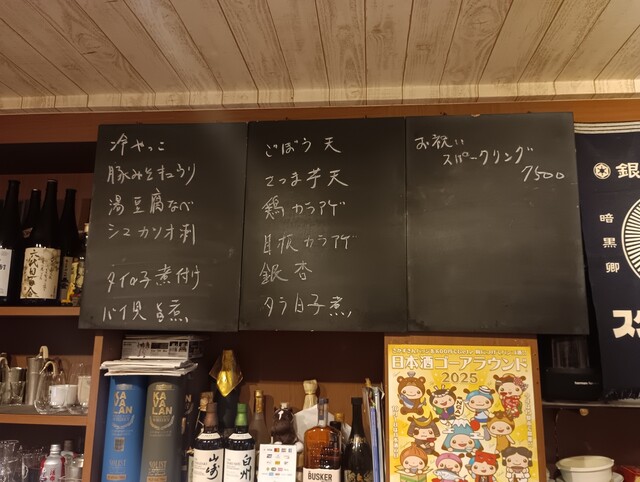 冷やっこ
豚みそキュウリ
湯豆腐なべ
シュカツオ刺
タイの子煮付け
バイ貝旨煮
ごぼう天
さつま芋天
鶏カラアゲ
目板カラアゲ
銀杏
タラ白子煮
お祝い
スパークリング
7500
銀
暗黒卿
スタ
六代目百合
KAVALAN
SOLIST
KAVALAN
SOLIST
山崎
白州
BUSKER
日本酒ゴーアラウンド
2025